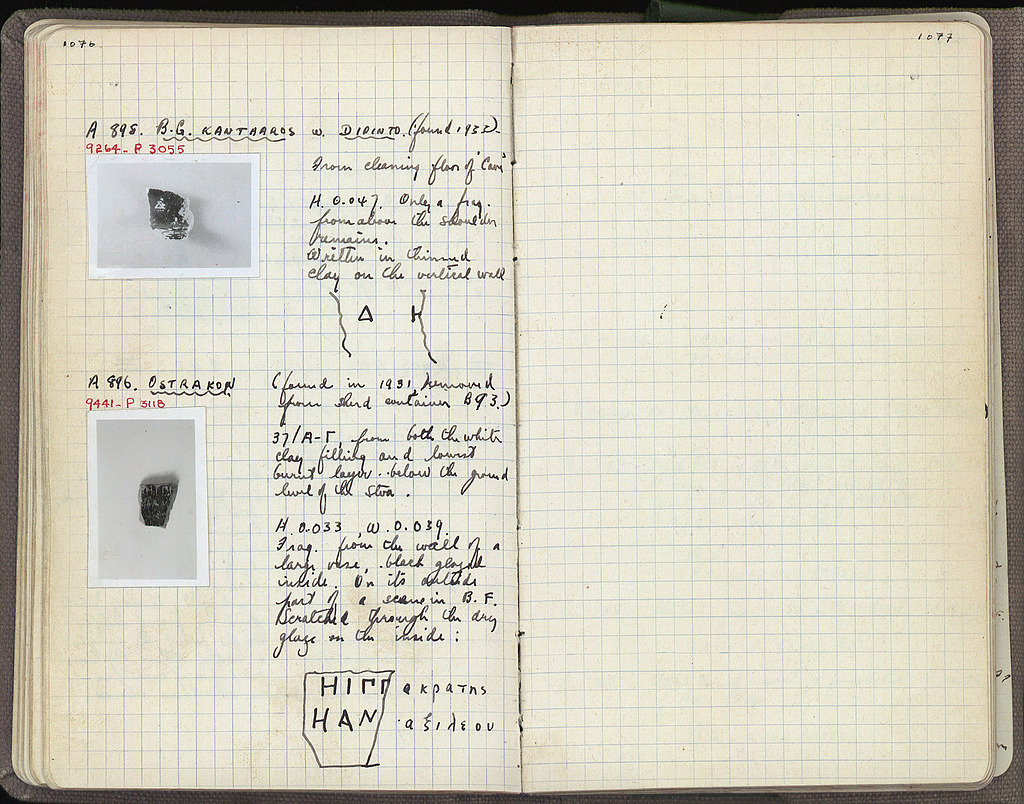 1076
A 895. B.G. KANTAROS w. DIPINTO. (found 1933).
9264 - P 3055
From cleaning floor of 'Cave'
H. 0.047. Only a frag.
from above the shoulder
remains.
Written in thinned
clay on the vertical wall
Δ Κ
A 896. OSTRAKON (found in 1931, removed
from sherd container B93.)
9441 - P 3118
37/Α-Γ, from both the white
clay filling and lowest
burnt layer.. below the ground
level of the stoa.
H. 0.033, W. 0.039.
Frag. from the wall of a
large vase, black glazed
inside. On its outside
part of a scene in B.F.
Scratched through the dry
glaze on the inside:
ΗΙΠΠ ακρατης
ΗΑΝ αξιλεου
1077